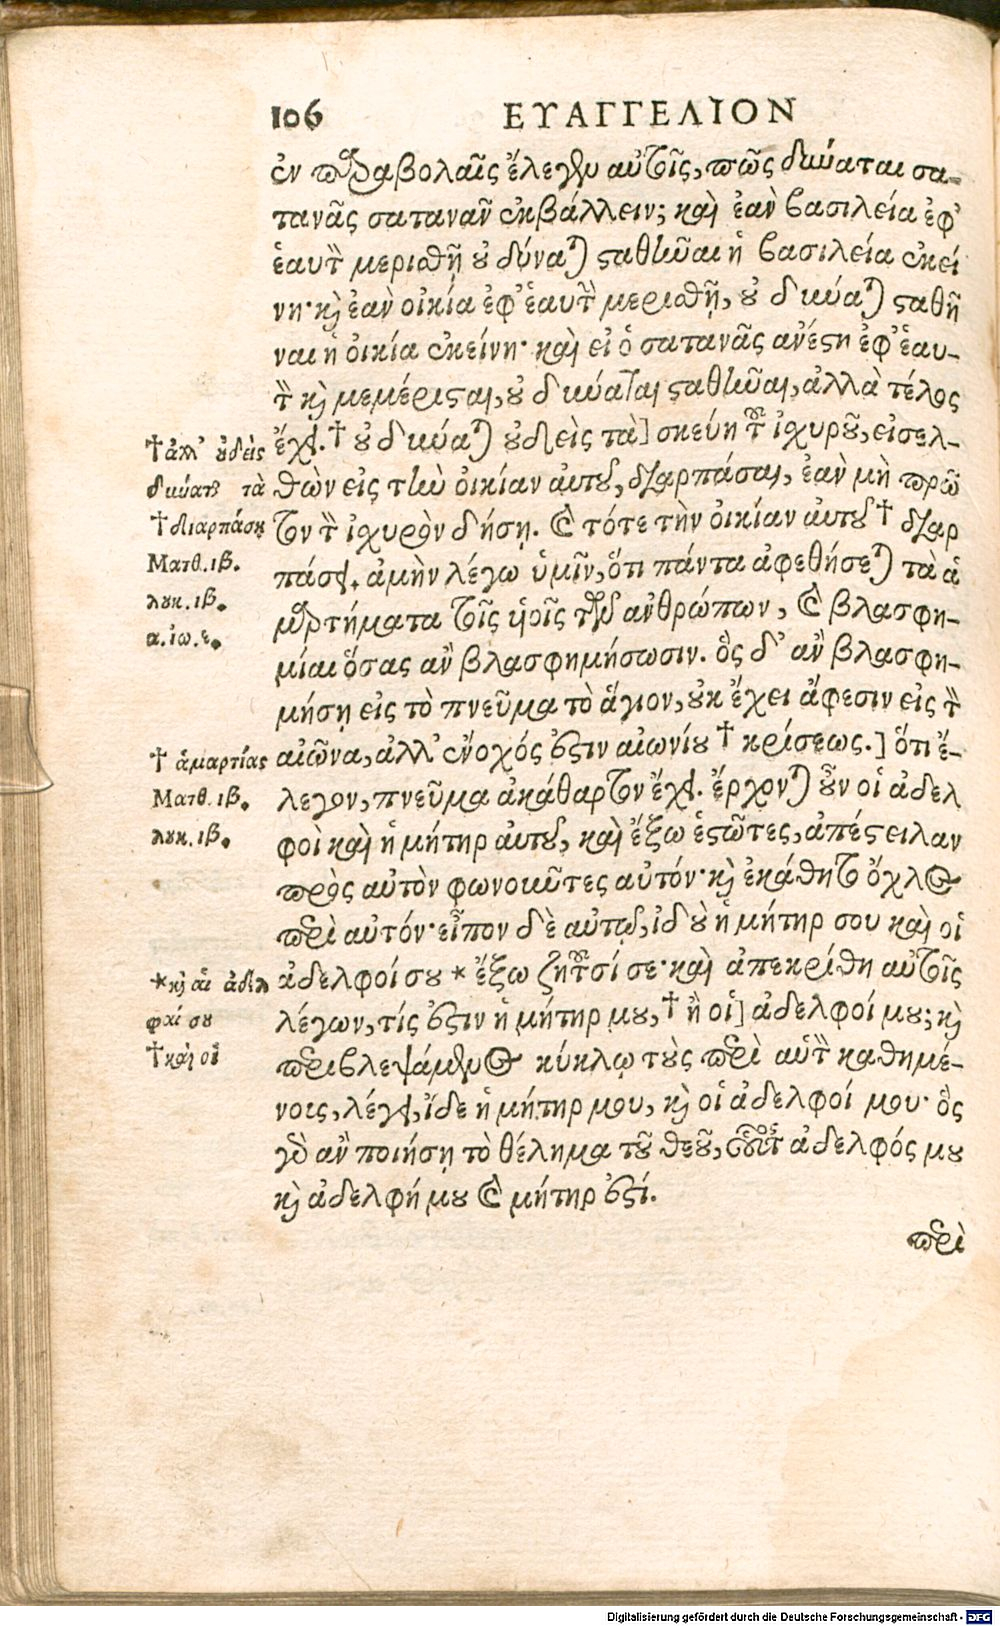 106 ΕΥΑΓΓΕΛΙΟΝ
ἐν παραβολαῖς ἔλεγεν αὐτοῖς, πῶς δύναται σα-
τανᾶς σατανᾶν ἐκβάλλειν; καὶ ἐὰν βασιλεία ἐφ᾽
ἑαυτὴν μερισθῇ οὐ δύναται σταθῆναι ἡ βασιλεία ἐκεί
νη· καὶ ἐὰν οἰκία ἐφ᾽ ἑαυτὴν μερισθῇ, οὐ δύναται σταθῆ
ναι ἡ οἰκία ἐκείνη· καὶ εἰ ὁ σατανᾶς ἀνέστη ἐφ᾽ ἑαυ-
τὸν καὶ μεμέρισται, οὐ δύναται σταθῆναι, ἀλλὰ τέλος
ἔχει. † οὐ δύναται οὐδεὶς τὰ] σκεύη τοῦ ἰχυροῦ, εἰσελ-
θὼν εἰς τὴν οἰκίαν αὐτοῦ, διαρπάσαι, ἐὰν μὴ πρῶ
τον τὸν ἰχυρὸν δήσῃ. καὶ τότε τὴν οἰκίαν αὐτοῦ † διαρ
πάσει. ἀμὴν λέγω ὑμῖν, ὅτι πάντα ἀφεθήσεται τὰ ἁ
μαρτήματα τοῖς υἱοῖς τῶν ἀνθρώπων, καὶ βλασφη-
μίαι ὅσας ἂν βλασφημήσωσιν. ὃς δ᾽ ἂν βλασφη-
μήσῃ εἰς τὸ πνεῦμα τὸ ἅγιον, οὐκ ἔχει ἄφεσιν εἰς τὸν
αἰῶνα, ἀλλ᾽ ἔνοχός ἐστιν αἰωνίου † κρίσεως.] ὅτι ἔ-
λεγον, πνεῦμα ἀκάθαρτον ἔχει. ἔρχονται οὖν οἱ ἀδελ
φοὶ καὶ ἡ μήτηρ αὐτοῦ, καὶ ἔξω ἑστῶτες, ἀπέστειλαν
πρὸς αὐτὸν φωνοῦντες αὐτόν· καὶ ἐκάθητο ὄχλος
περὶ αὐτόν· εἶπον δὲ αὐτῷ, ἰδοὺ ἡ μήτηρ σου καὶ οἱ
ἀδελφοί σου * ἔξω ζητοῦσί σε· καὶ ἀπεκρίθη αὐτοῖς
λέγων, τίς ἐστιν ἡ μήτηρ μου, † ἢ οἱ] ἀδελφοί μου; καὶ
περιβλεψάμενος κύκλῳ τοὺς περὶ αὐτὸν καθημέ-
νοις, λέγει, ἴδε ἡ μήτηρ μου, καὶ οἱ ἀδελφοί μου· ὃς
γὰρ ἂν ποιήσῃ τὸ θέλημα τοῦ θεοῦ, οὗτος ἀδελφός μου
καὶ ἀδελφή μου καὶ μήτηρ ἐστί.
περὶ
† ἀλλ᾽ οὐδεὶς
δύναται τὰ
† διαρπάσῃ
Ματθ. ιβ.
λουκ. ιβ.
α. ἰω. ε.
† ἁμαρτίας
Ματθ. ιβ.
λουκ. ιβ.
* καὶ αἱ ἀδελ
φαί σου
† καὶ οἱ
Digitalisierung gefördert durch die Deutsche Forschungsgemeinschaft - DFG